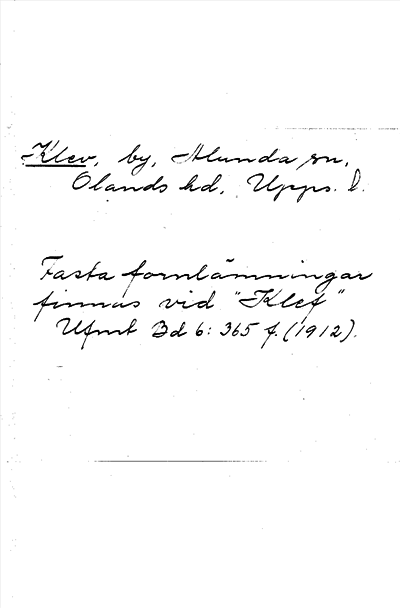 Klev, by, Alunda sn,
Olands hd, Upps. l.
Fasta fornlämningar
finnas vid "Klef"
Ufmt Bd 6: 365 f. (1912).